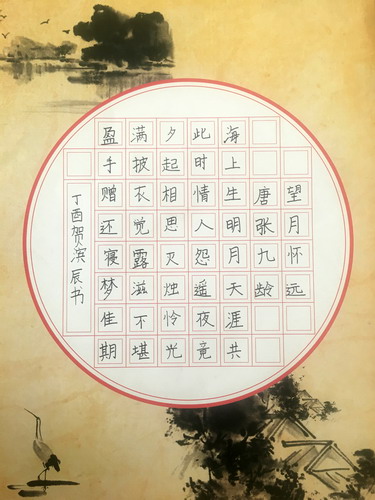 望月怀远
唐张九龄
海上生明月天涯共
此时情人怨遥夜竟
夕起相思灭烛怜光
满披衣觉露滋不堪
盈手赠还寝梦佳期
丁酉贺滨辰书